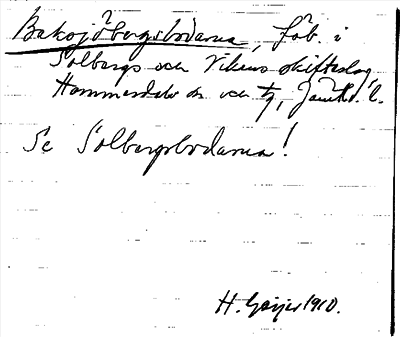 Baksjöbergsbodarna, fäb. i
Solbergs och Vikens skifteslag
Hammerdals sn. och tg, Jämtl. l.
Se Solbergsbodarna!
H. Geijer 1910.